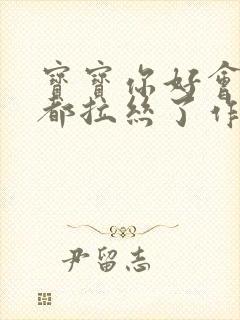 寶寶你好會
都拉絲了作
尹留志